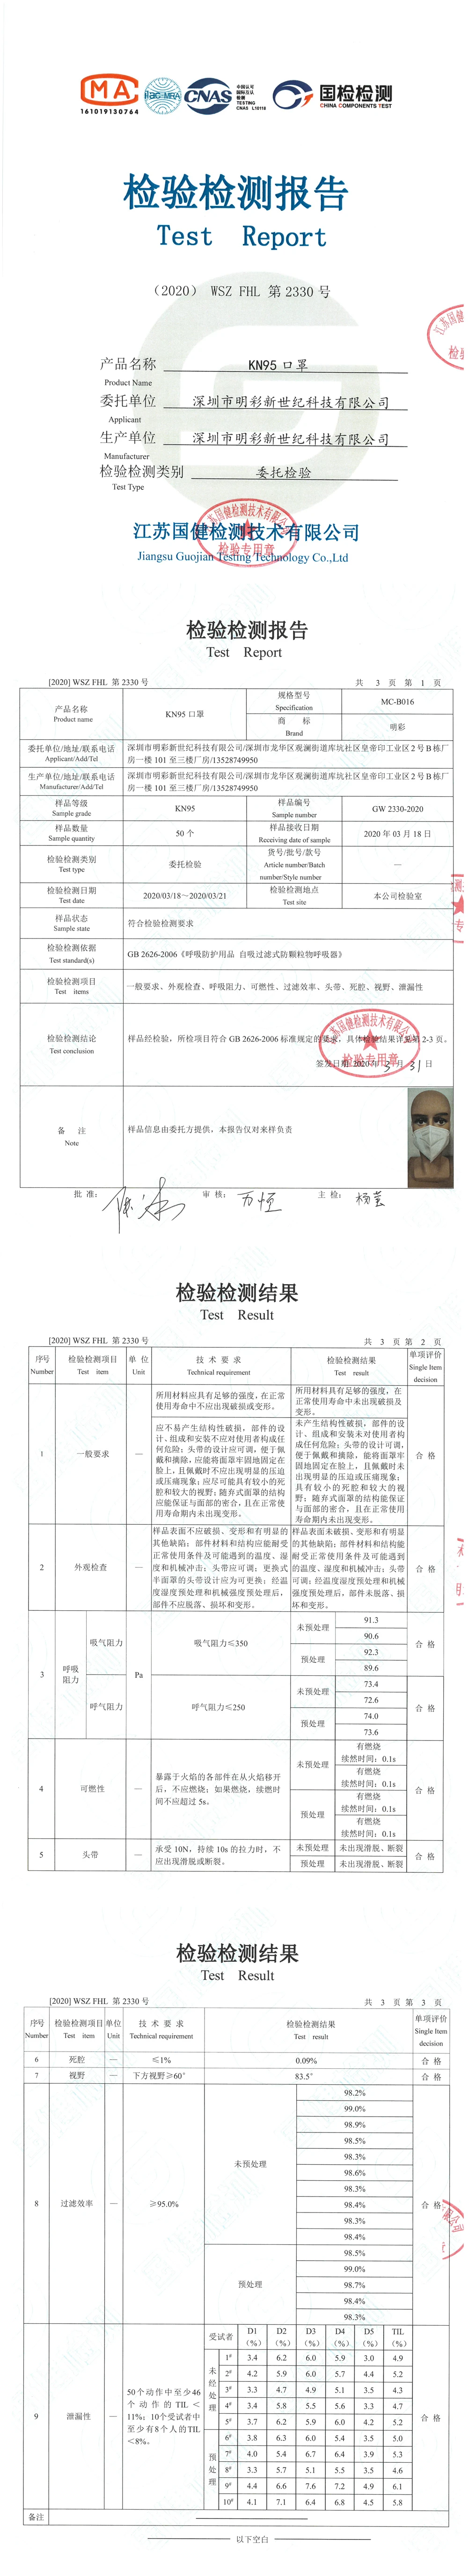 MA
161019130764
ilac-MRA
CNAS
中国认可
国际互认
检测
TESTING
CNAS L10116
国检检测
CHINA COMPONENTS TEST
检验检测报告
Test Report
（2020） WSZ FHL 第 2330 号
产品名称 KN95 口罩
Product Name
委托单位 深圳市明彩新世纪科技有限公司
Applicant
生产单位 深圳市明彩新世纪科技有限公司
Manufacturer
检验检测类别 委托检验
Test Type
江苏国健检测技术有限公司
检验专用章
Jiangsu Guojian Testing Technology Co.,Ltd
检验检测报告
Test Report
[2020] WSZ FHL 第 2330 号 共 3 页 第 1 页
产品名称 Product name KN95 口罩 规格型号 Specification MC-B016
商 标 Brand 明彩
委托单位/地址/联系电话 Applicant/Add/Tel 深圳市明彩新世纪科技有限公司/深圳市龙华区观澜街道库坑社区皇帝印工业区 2 号 B 栋厂
房一楼 101 至三楼厂房/13528749950
生产单位/地址/联系电话 Manufacturer/Add/Tel 深圳市明彩新世纪科技有限公司/深圳市龙华区观澜街道库坑社区皇帝印工业区 2 号 B 栋厂
房一楼 101 至三楼厂房/13528749950
样品等级 Sample grade KN95 样品编号 Sample number GW 2330-2020
样品数量 Sample quantity 50 个 样品接收日期 Receiving date of sample 2020 年 03 月 18 日
检验检测类别 Test type 委托检验 货号/批号/款号 Article number/Batch number/Style number —
检验检测日期 Test date 2020/03/18～2020/03/21 检验检测地点 Test site 本公司检验室
样品状态 Sample state 符合检验检测要求
检验检测依据 Test standard(s) GB 2626-2006《呼吸防护用品 自吸过滤式防颗粒物呼吸器》
检验检测项目 Test items 一般要求、外观检查、呼吸阻力、可燃性、过滤效率、头带、死腔、视野、泄漏性
检验检测结论 Test conclusion 样品经检验，所检项目符合 GB 2626-2006 标准规定的要求，具体检验结果详见第 2-3 页。
签发日期 2020 年 3 月 31 日
检验专用章
备 注 Note 样品信息由委托方提供，本报告仅对来样负责
批 准： 审 核： 主 检：
检验检测结果
Test Result
[2020] WSZ FHL 第 2330 号 共 3 页 第 2 页
序号 Number 检验检测项目 Test item 单 位 Unit 技 术 要 求 Technical requirement 检验检测结果 Test result 单项评价 Single Item decision
1 一般要求 — 合 格
所用材料应具有足够的强度，在正常
使用寿命中不应出现破损或变形。
所用材料具有足够的强度，在
正常使用寿命中未出现破损及
变形。
应不易产生结构性破损，部件的设
计、组成和安装不应对使用者构成
任何危险；头带的设计应可调，便于
佩戴和摘除，应能将面罩牢固地固定在
脸上，且佩戴时不应出现明显的压
迫或压痛现象；应尽可能具有较小的死
腔和较大的视野；随弃式面罩的结构
应能保证与面部的密合，且在正常使
用寿命期内未出现变形。
未产生结构性破损，部件的设
计、组成和安装未对使用者构成
任何危险；头带的设计可调，
便于佩戴和摘除，能将面罩牢
固地固定在脸上，且佩戴时未
出现明显的压迫或压痛现象；
具有较小的死腔和较大的视
野；随弃式面罩的结构能保证
与面部的密合，且在正常使用
寿命期内未出现变形。
2 外观检查 — 合 格
样品表面不应破损、变形和有明显的
其他缺陷；部件材料和结构应能耐受
正常使用条件及可能遇到的温度、湿
度和机械冲击；头带应可调；更换式
半面罩的头带设计应为可更换；经温
度湿度预处理和机械强度预处理后，
部件不应脱落、损坏和变形。
样品表面未破损、变形和有明显
的其他缺陷；部件材料和结构能
耐受正常使用条件及可能遇到
的温度、湿度和机械冲击；头带
可调；经温度湿度预处理和机械
强度预处理后，部件未脱落、损
坏和变形。
3 呼吸阻力 Pa
吸气阻力 吸气阻力≤350 未预处理 91.3 合 格
90.6
预处理 92.3
89.6
呼气阻力 呼气阻力≤250 未预处理 73.4 合 格
72.6
预处理 74.0
73.6
4 可燃性 — 合 格
暴露于火焰的各部件在从火焰移开
后，不应燃烧；如果燃烧，续燃时
间不应超过 5s。
未预处理 有燃烧
续燃时间：0.1s
有燃烧
续燃时间：0.1s
预处理 有燃烧
续燃时间：0.1s
有燃烧
续燃时间：0.1s
5 头带 — 承受 10N，持续 10s 的拉力时，不
应出现滑脱或断裂。
未预处理 未出现滑脱、断裂 合 格
预处理 未出现滑脱、断裂
检验检测结果
Test Result
[2020] WSZ FHL 第 2330 号 共 3 页 第 3 页
序号 Number 检验检测项目 Test item 单位 Unit 技 术 要 求 Technical requirement 检验检测结果 Test result 单项评价 Single Item decision
6 死腔 — ≤1% 0.09% 合 格
7 视野 — 下方视野≥60° 83.5° 合 格
8 过滤效率 — ≥95.0% 合 格
未预处理 98.2%
99.0%
98.9%
98.5%
98.3%
98.6%
98.3%
98.4%
98.3%
98.4%
预处理 98.5%
99.0%
98.7%
98.4%
98.3%
9 泄漏性 — 合 格
50个动作中至少46
个 动 作 的 TIL ＜
11%；10个受试者中
至少有8个人的TIL
＜8%。
受试者 D1（%） D2（%） D3（%） D4（%） D5（%） TIL（%）
未经处理 1# 3.4 6.2 6.0 5.9 3.0 4.9
2# 4.2 5.9 6.0 5.7 4.4 5.2
3# 3.3 4.7 4.9 5.1 3.5 4.3
4# 3.4 5.8 5.5 5.6 3.3 4.7
5# 3.7 6.2 5.9 6.0 4.2 5.2
预处理 6# 3.8 6.3 6.0 5.4 3.5 5.0
7# 4.0 5.4 6.7 6.4 3.9 5.3
8# 3.3 5.7 5.1 5.5 3.5 4.6
9# 4.4 6.6 7.6 7.2 4.9 6.1
10# 4.1 7.1 6.4 6.8 4.5 5.8
备注
以下空白